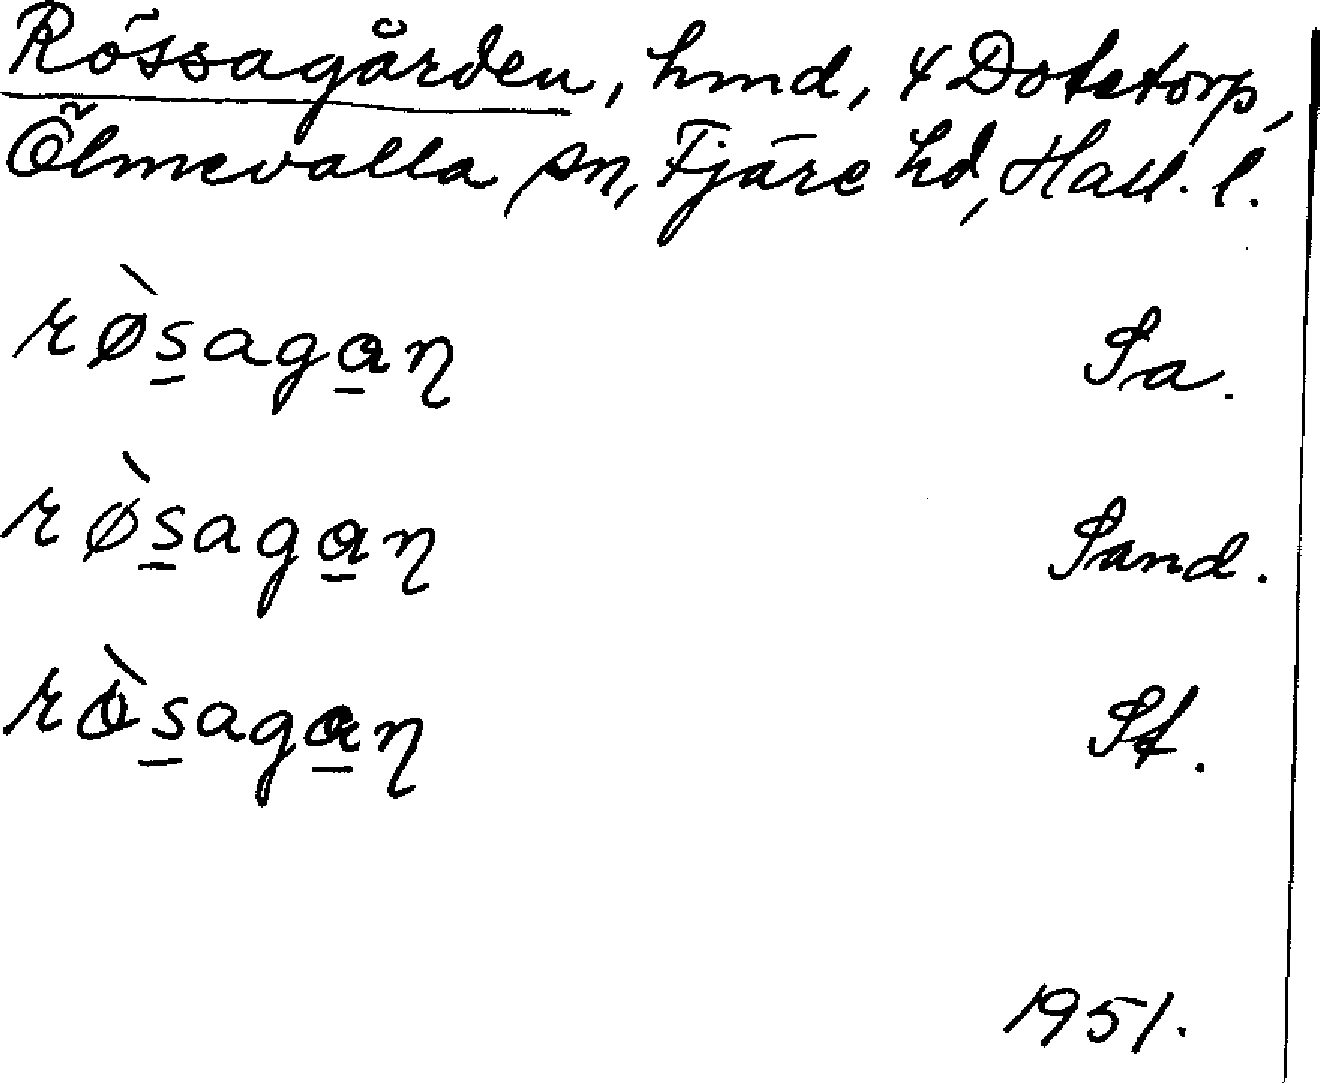 Rössagården, hmd, 4 Dotetorp,
Ölmevalla sn, Fjäre hd, Hall. l.
rø̀s̲aga̲ɳ Sa.
rø̀s̲aga̲ɳ Sand.
rò̀s̲aga̲ɳ St.
1951.